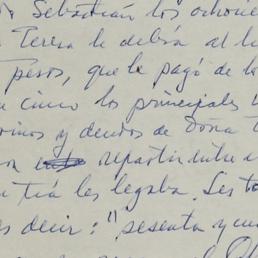 Sebastián los ochocie
Teresa le debía al
pesos, que le pagó de
cinco los principales
y deudos de Doña
repartir entre
tía les legaba. Les
es decir: "sesenta y